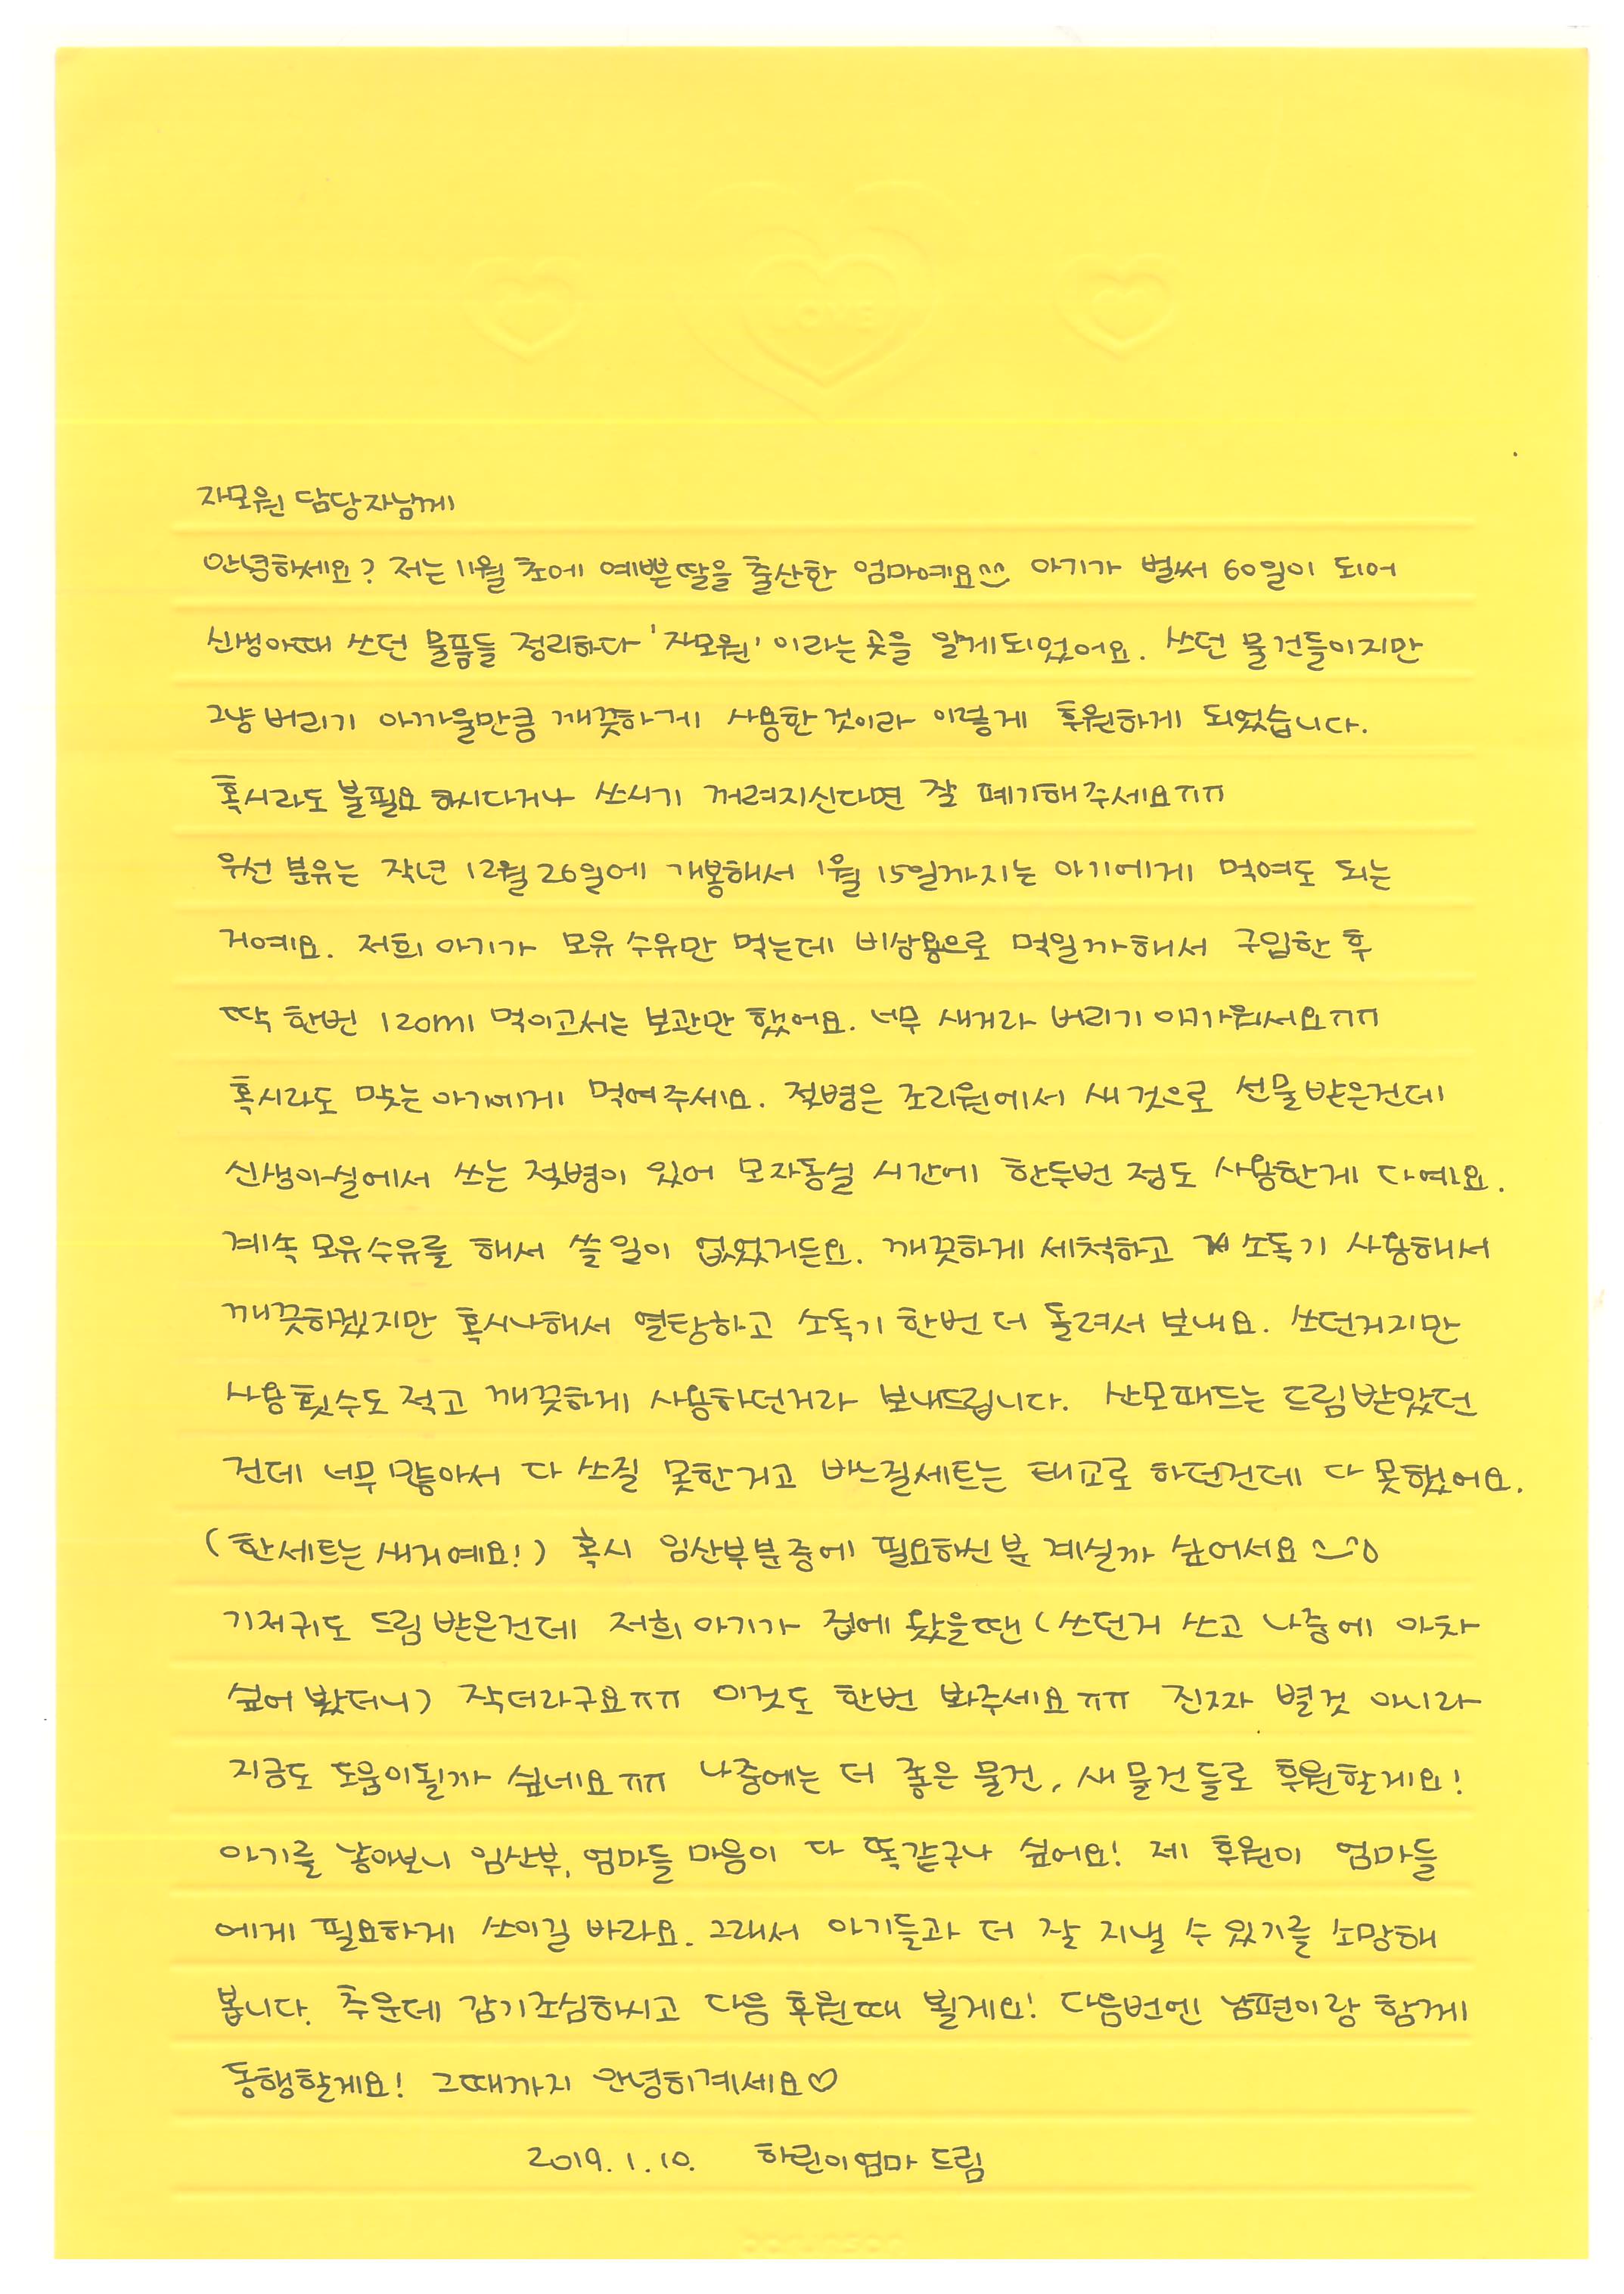 LOVE
자모원 담당자님께
안녕하세요? 저는 11월 초에 예쁜딸을 출산한 엄마예요^^ 아기가 벌써 60일이 되어
신생아때 쓰던 물품들 정리하다 '자모원' 이라는 곳을 알게되었어요. 쓰던 물건들이지만
그냥 버리기 아까울만큼 깨끗하게 사용한것이라 이렇게 후원하게 되었습니다.
혹시라도 불필요 하시다거나 쓰시기 꺼려지신다면 잘 폐기해주세요ㅠㅠ
우선 분유는 작년 12월 26일에 개봉해서 1월 15일까지는 아기에게 먹여도 되는
거예요. 저희 아기가 모유 수유만 먹는데 비상용으로 먹일까해서 구입한 후
딱 한번 120ml 먹이고서는 보관만 했어요. 너무 새거라 버리기 아까워서요ㅠㅠ
혹시라도 맞는 아기에게 먹여주세요. 젖병은 조리원에서 새것으로 선물받은건데
신생아실에서 쓰는 젖병이 있어 모자동실 시간에 한두번 정도 사용한게 다예요.
계속 모유수유를 해서 쓸일이 없었거든요. 깨끗하게 세척하고 소독기 사용해서
깨끗하겠지만 혹시나해서 열탕하고 소독기 한번 더 돌려서 보내요. 쓰던거지만
사용횟수도 적고 깨끗하게 사용하던거라 보내드립니다. 산모패드는 드림받았던
건데 너무 많아서 다 쓰질 못한거고 바느질세트는 태교로 하던건데 다 못했어요.
(한세트는 새거예요!) 혹시 임산부분중에 필요하신 분 계실까 싶어서요^^
기저귀도 드림 받은건데 저희 아기가 집에 왔을땐 (쓰던거 쓰고 나중에 아차
싶어 봤더니) 작더라구요ㅠㅠ 이것도 한번 봐주세요ㅠㅠ 진짜 별것 아니라
지금도 도움이될까 싶네요ㅠㅠ 나중에는 더 좋은 물건, 새물건들로 후원할게요!
아기를 낳아보니 임산부, 엄마들 마음이 다 똑같구나 싶어요! 제 후원이 엄마들
에게 필요하게 쓰이길 바라요. 그래서 아기들과 더 잘 지낼 수 있기를 소망해
봅니다. 추운데 감기조심하시고 다음 후원때 뵐게요! 다음번엔 남편이랑 함께
동행할게요! 그때까지 안녕히계세요♡
2019. 1. 10. 하린이엄마 드림